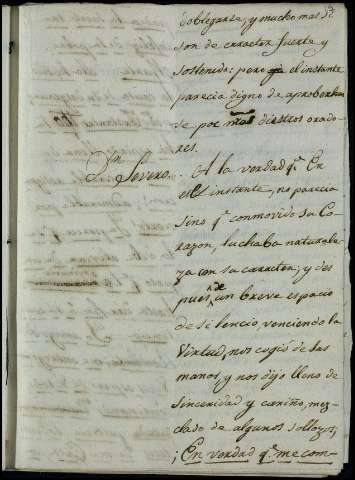 doblegarse, y mucho mas si
son de caracter fuerte y
sostenido: pero el instante
parecia digno de aprobechar
se por mas diestros orado-
res.
Dn. Severo. A la verdad qe. En
el instante, no parecia
sino qe. conmovido su Co-
razon, luchaba naturale-
za con su caracter; y des
pues de un breve espacio
de silencio, venciendo la
Virtud, nos cogió de las
manos, y nos dijo lleno de
sinceridad y cariño, mez-
clado de algunos sollozos;
¡En verdad qe. me com-